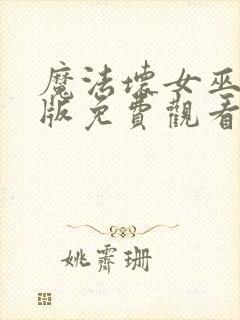 魔法壞女巫
版免費觀看
姚霽珊